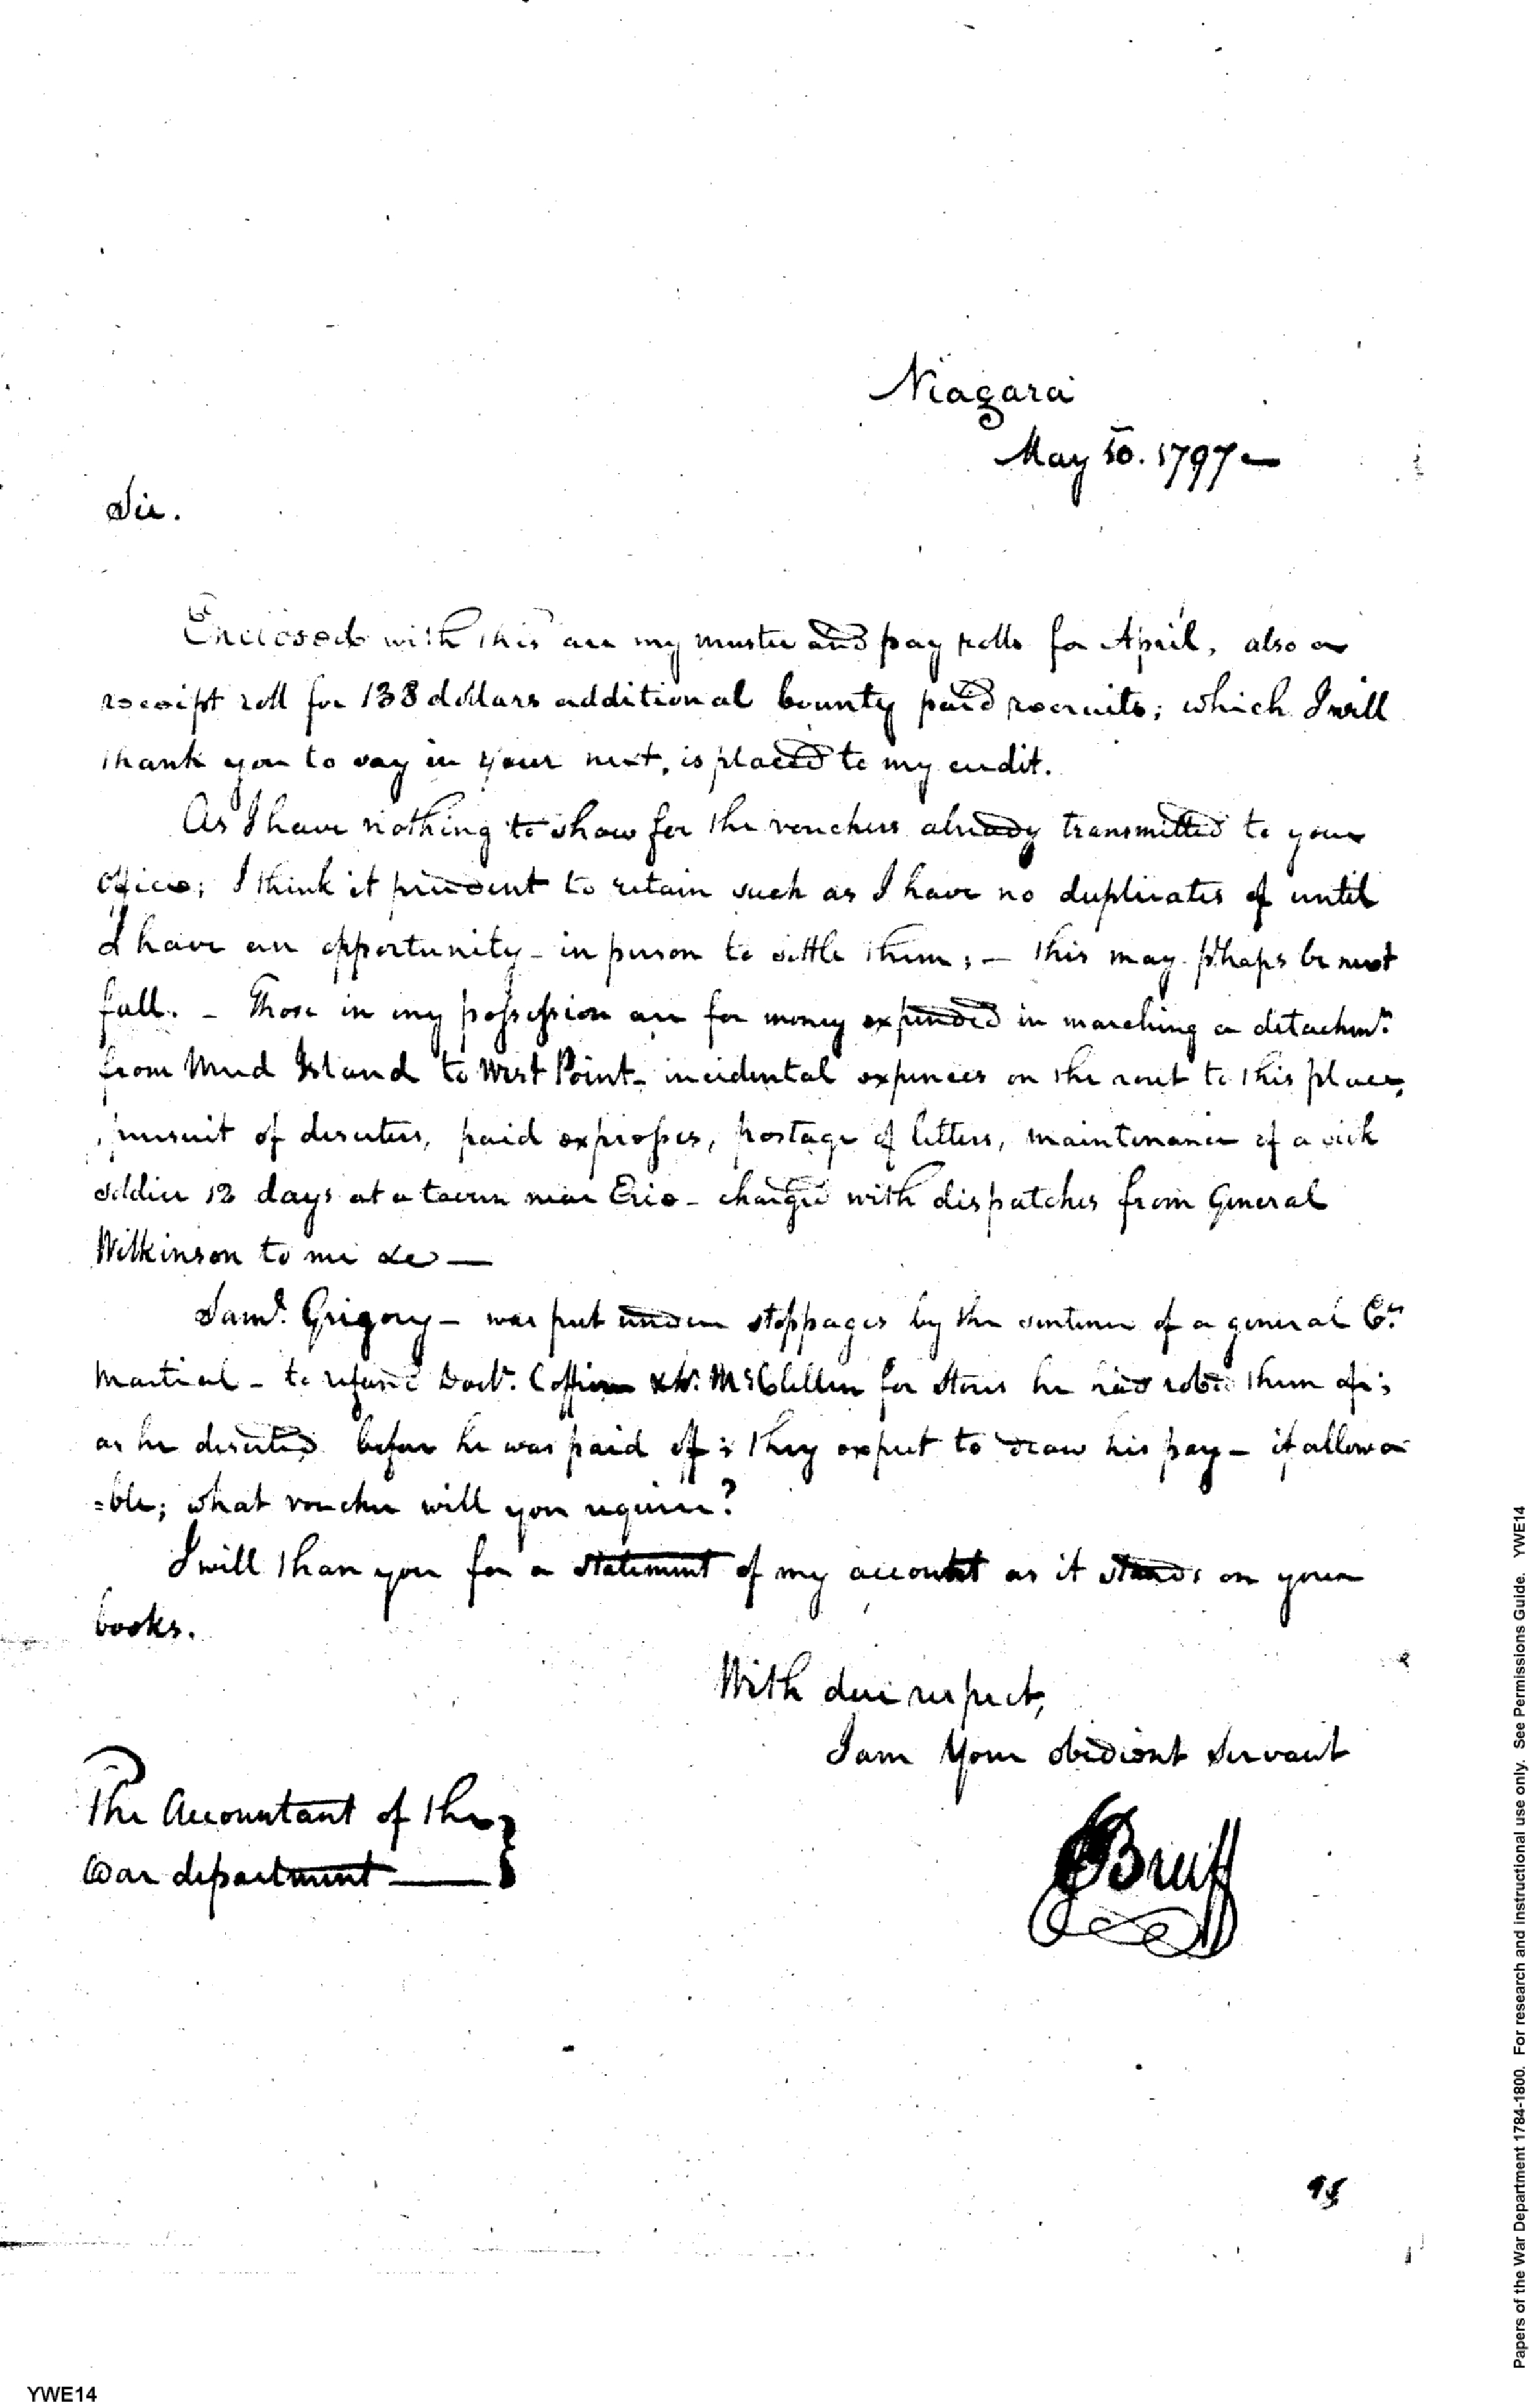 Niagara
May 10. 1797 —
Sir.
Enclosed with this are my muster and pay rolls for April, also a
receipt roll for 138 dollars additional bounty paid recruits; which I will
thank you to say in your next, is placed to my credit.
As I have nothing to show for the vouchers already transmitted to your
office; I think it prudent to retain such as I have no duplicates of until
I have an opportunity - in person to settle them; — this may phaps be next
fall. - Those in my possession are for money expended in marching a detachmt.
from Mud Island to West Point - incidental expences on the rout to this place,
pursuit of deserters, paid expresses, postage of letters, maintenance of a sick
soldier 12 days at a tavern near Erie - charged with dispatches from General
Wilkinson to me &c —
Saml. Grigory - was put under stoppages by the sentence of a general Ct.
Martial - to refund Doctr. Coffin & McClellen for stores he had robed them of;
as he deserted before he was paid off; they expect to draw his pay - if allowa
=ble; what voucher will you require?
I will than you for a statement of my account as it stands on your
books.
With due respect,
I am Your obedient Servant
Bruff
The Accountant of the
War department —
98
YWE14
Papers of the War Department 1784-1800. For research and instructional use only. See Permissions Guide. YWE14